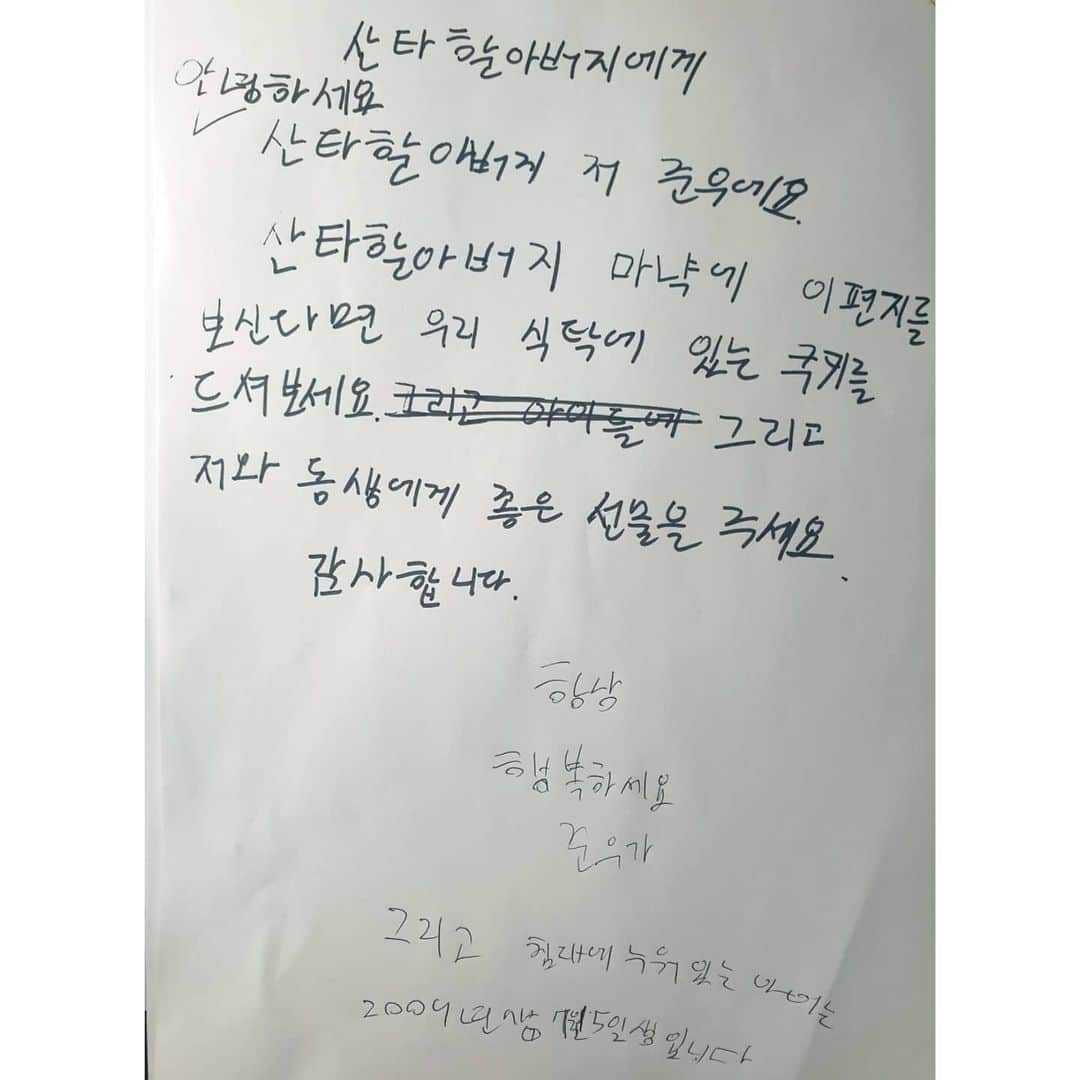 산타할아버지에게
안녕하세요
산타할아버지 저 준우에요.
산타할아버지 마냑에 이편지를
보신다면 우리 식탁에 있는 쿡키를
드셔보세요. 그리고 아이들에 그리고
저와 동생에게 좋은 선물을 주세요.
감사합니다.
항상
행복하세요
준우가
그리고 침대에 누워있는 아이는
2009년생 7월5일생입니다